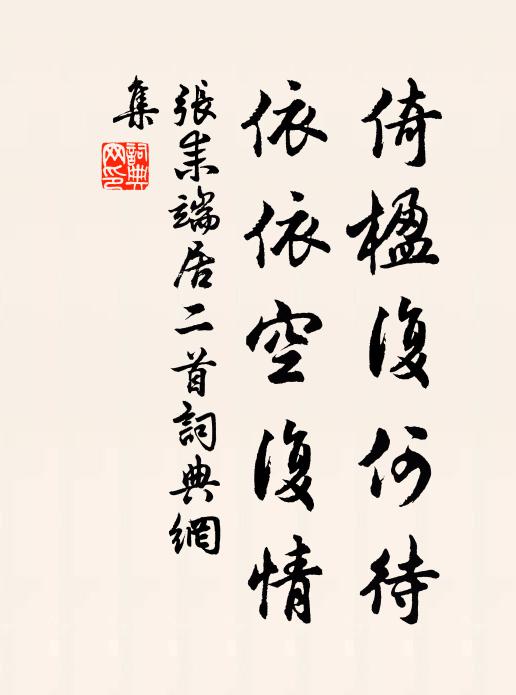 倚楹復何待
依依空復情
張耒端居二首詞典網
集
詞典網印